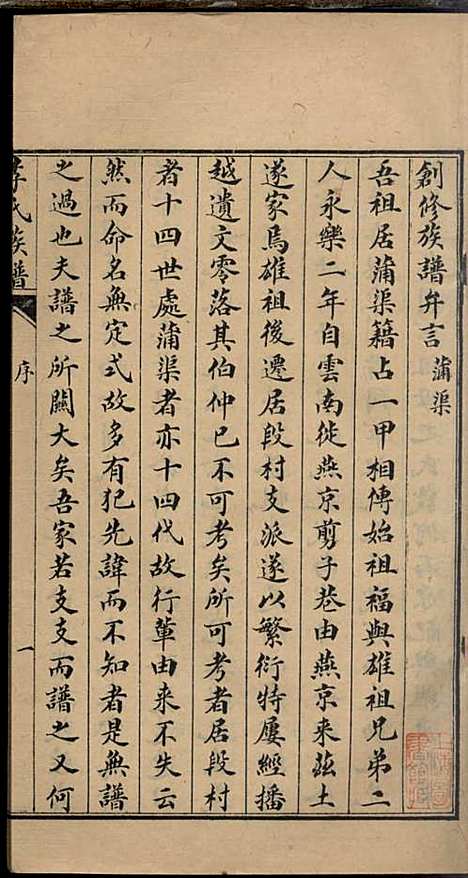 創修族譜弁言 蒲渠
吾祖居蒲渠籍占一甲相傳始祖福與雄祖兄弟二
人永樂二年自雲南徙燕京剪子巷由燕京來茲土
遂家焉雄祖後遷居段村支派遂以繁衍特屢經播
越遺文零落其伯仲已不可考矣所可考者居段村
者十四世處蒲渠者亦十四代故行輩由來不失云
然而命名無定式故多有犯先諱而不知者是無譜
之過也夫譜之所關大矣吾家若支支而譜之又何
李氏族譜 序 一